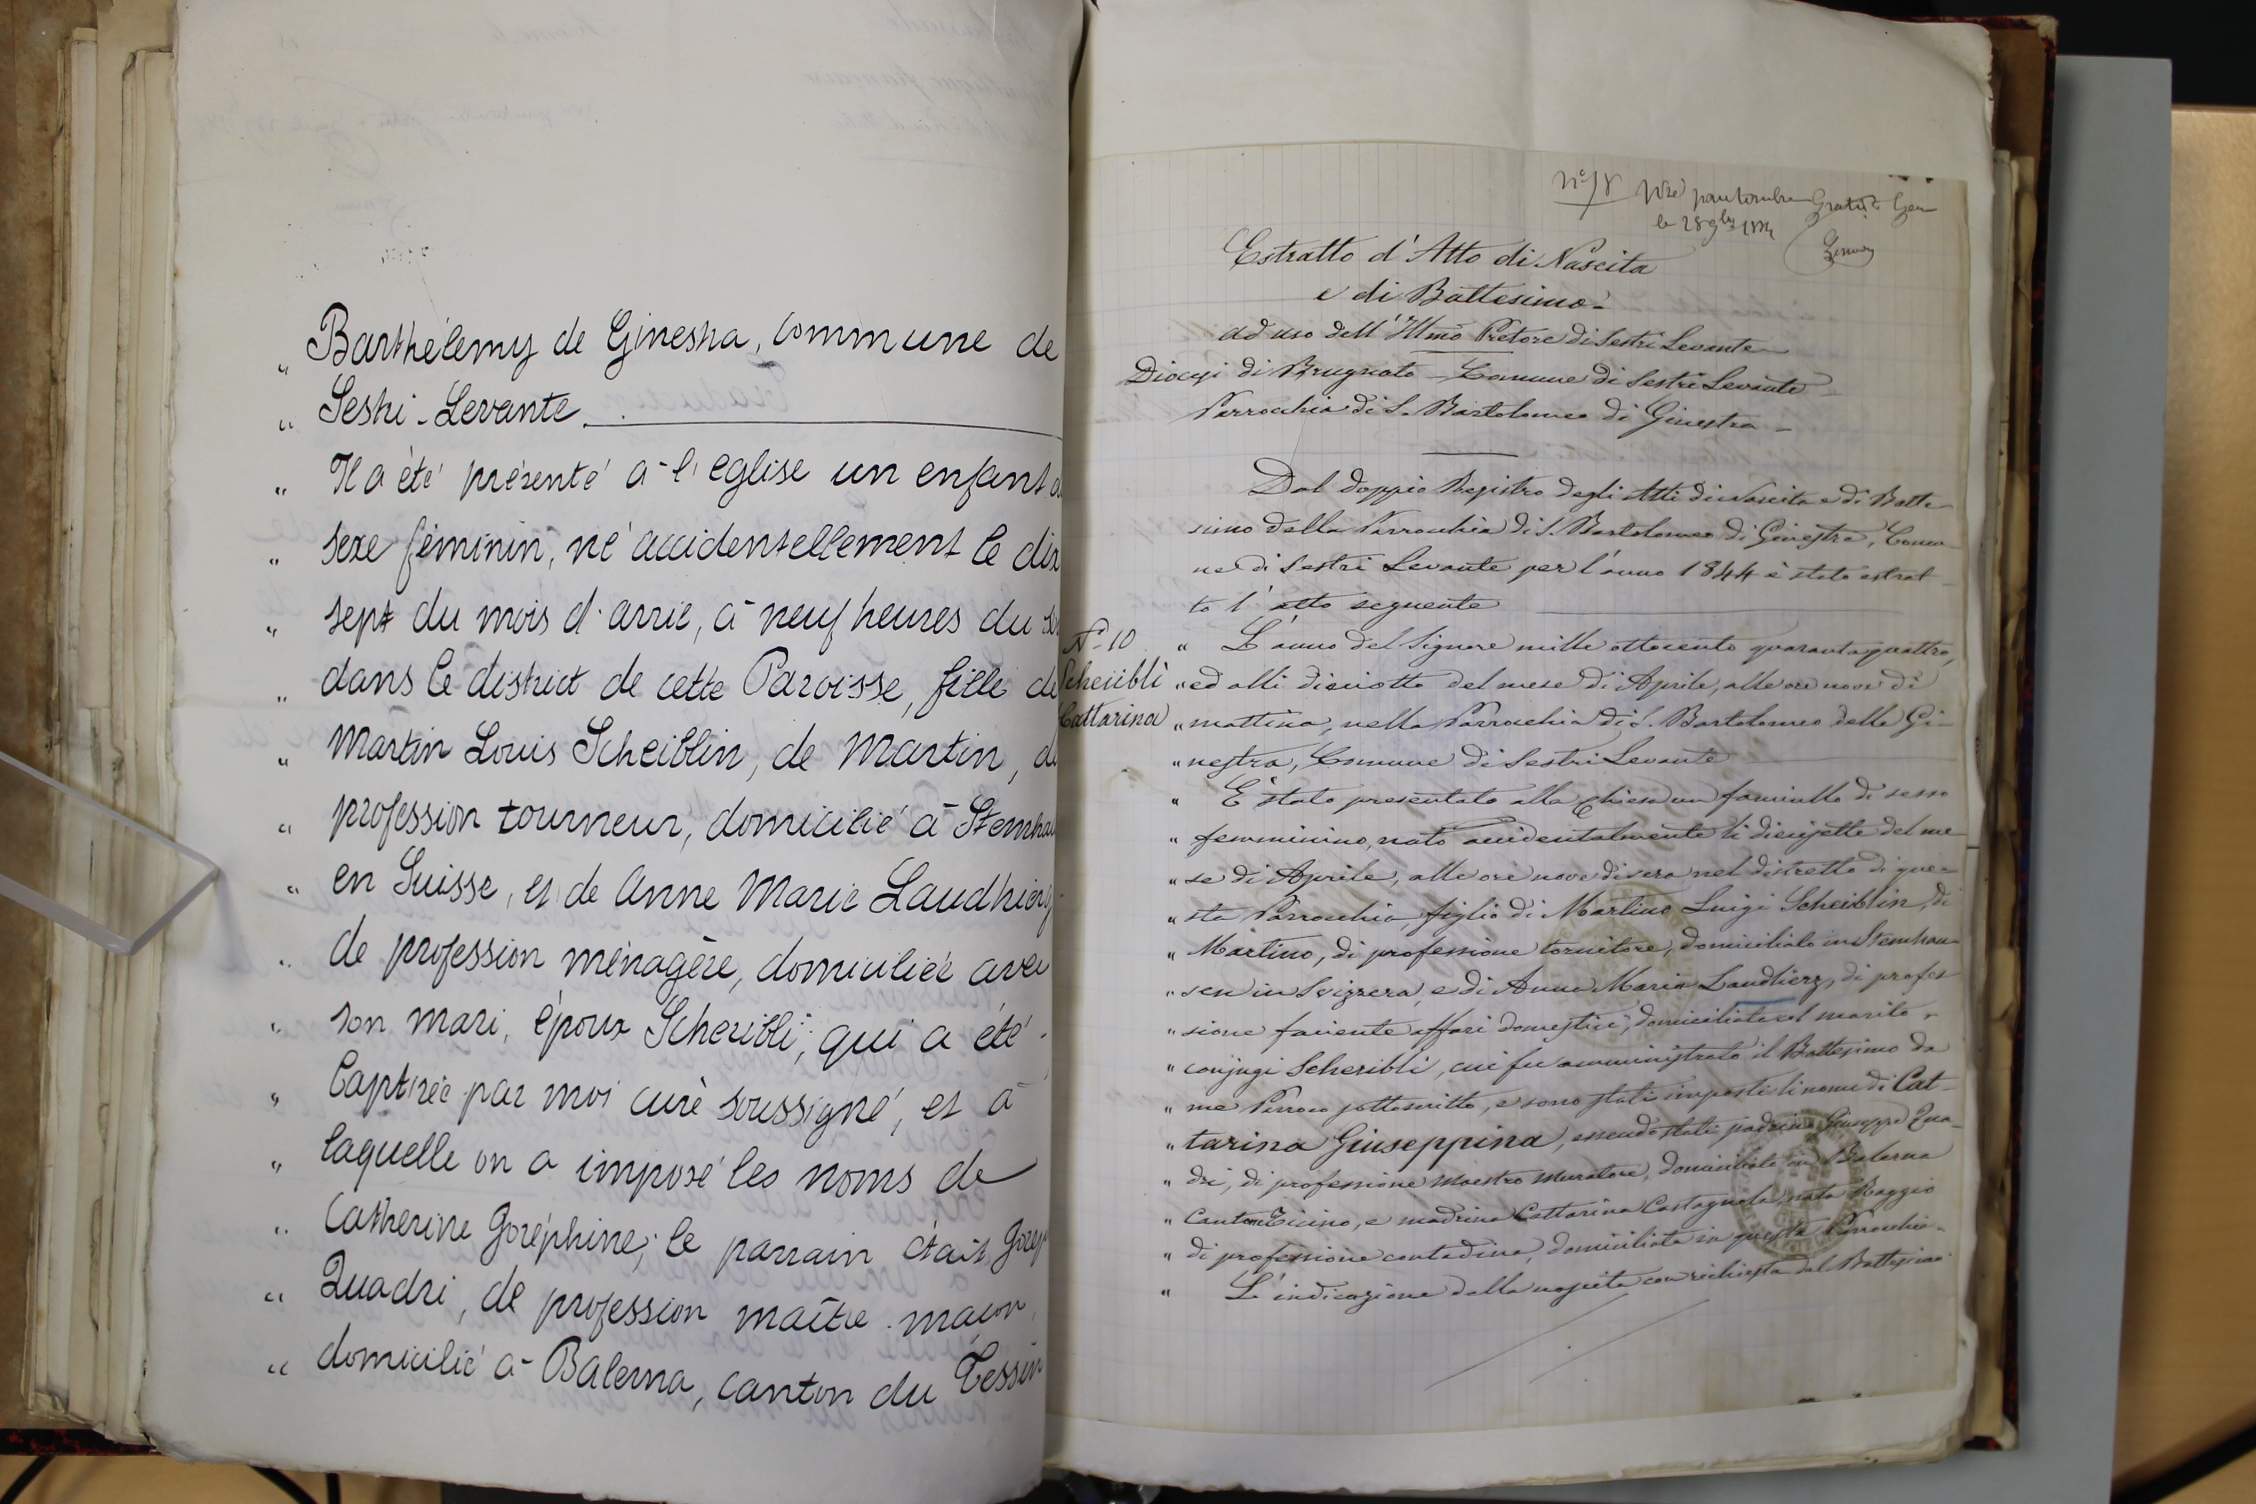 „ Barthélemy de Ginestra, commune de
„ Sestri-Levante
„ Il a été présenté à l'église un enfant
„ sexe féminin, né accidentellement le dix
„ sept du mois d'avril, à neuf heures du
„ dans le district de cette Paroisse, fille de
„ Martin Louis Scheiblin, de Martin, de
„ profession tourneur, domicilié à Stemhau
„ en Suisse, et de Anne Marie Laudhierz
„ de profession ménagère, domiciliée avec
„ son mari, époux Scheribli, qui a été
„ baptisée par moi curé soussigné, et à
„ laquelle on a imposé les noms de
„ Catherine Joséphine; le parrain était Josep
„ Quadri, de profession maître maçon,
„ domicilié à Balerna, canton du Tessin
n° 18 Visé pour timbre Gratis
le 28 9bre
Estratto d'Atto di Nascita
e di Battesimo
ad uso dell'Illmo Pretore di Sestri Levante
Diocesi di Brugnato - Comune di Sestri Levante
Parrocchia di S. Bartolomeo di Ginestra
Dal doppio Registro degli Atti di Nascita e di Batte
simo della Parrochia di S. Bartolomeo di Ginestra, Comu
ne di Sestri Levante per l'anno 1844 è stato estrat
to l'atto seguente
N° 10
Scheiiblì
Cattarina
„ L'anno del Signore mille ottocento quarantaquattro,
„ ed alli dieciotto del mese di Aprile, alle ore nove di
„ mattina, nella Parrochia di S. Bartolomeo della Gi-
„ nestra, Comune di Sestri Levante
„ È stato presentato alla Chiesa un fanciullo di sesso
„ femminino, nato accidentalmente li diecisette del me
„ se di Aprile, alle ore nove di sera nel distretto di que-
„ sta Parrochia, figlio di Martino Luigi Scheiblin, di
„ Martino, di professione tornitore, domiciliato in Stemhau
„ sen in Svizzera, e di Anna Maria Laudhierz, di profes
„ sione faciente affari domestici, domiciliata col marito,
„ conjugi Scheribli, cui fu amministrato il Battesimo da
„ me Parroco sottoscritto, e sono stati imposti li nomi di Cat-
„ tarina Giuseppina, essendo stati padrino Giuseppe Qua-
„ dri, di professione Maestro Muratore, domiciliato in Balerna
„ Canton Ticino, e madrina Cattarina Castagnola, nata Raggio
„ di professione contadina, domiciliata in questa Parrochia.
„ L'indicazione della nascita con richiesta del Battesimo